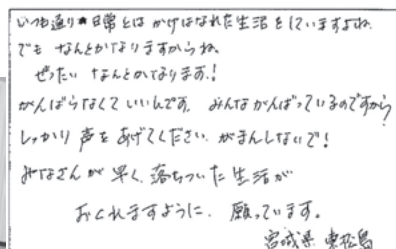 いつも通り日常とはかけはなれた生活をしていますよね
でもなんとかなりますからね。
ぜったいなんとかなります！
がんばらなくていいんです。みんながんばっているのですから
しっかり声をあげてください がまんしないで！
みなさんが早く、落ちついた生活が
おくれますように、願っています。
宮城県 東松島